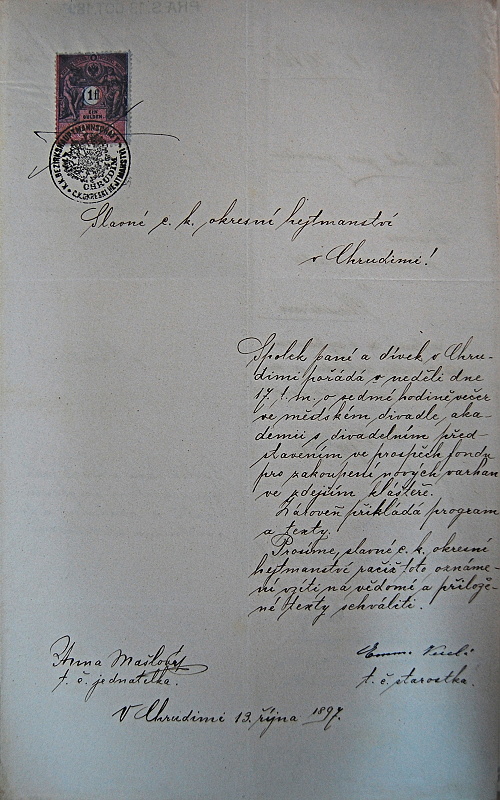 1 fl
EIN
GULDEN
K.K. BEZIRKSHAUPTMANNSCHAFT
CHRUDIM
C.K. OKRESNÍ HEJTMANSTVÍ
Slavné c. k. okresní hejtmanství
v Chrudimi!
Spolek paní a dívek v Chru-
dimi pořádá v neděli dne
17. t. m. o sedmé hodině večer
ve městském divadle, aka-
demii s divadelním před-
stavením ve prospěch fondu
pro zakoupení nových varhan
ve zdejším klášteře.
Zároveň přikládá program
a texty.
Prosíme, slavné c. k. okresní
hejtmanství račiž toto oznáme-
ní vzíti na vědomí a přilože-
né texty schváliti.
Anna Mašlová
t. č. jednatelka.
t. č. starostka.
V Chrudimi 13. října 1897.